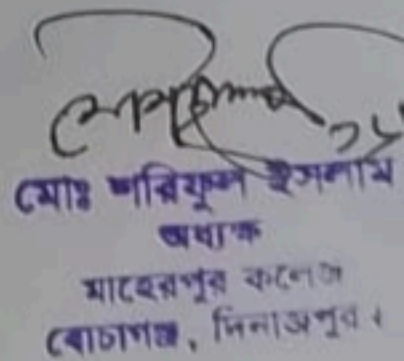 মোঃ শরিফুল ইসলাম
অধ্যক্ষ
মাহেরপুর কলেজ
বোচাগঞ্জ, দিনাজপুর।